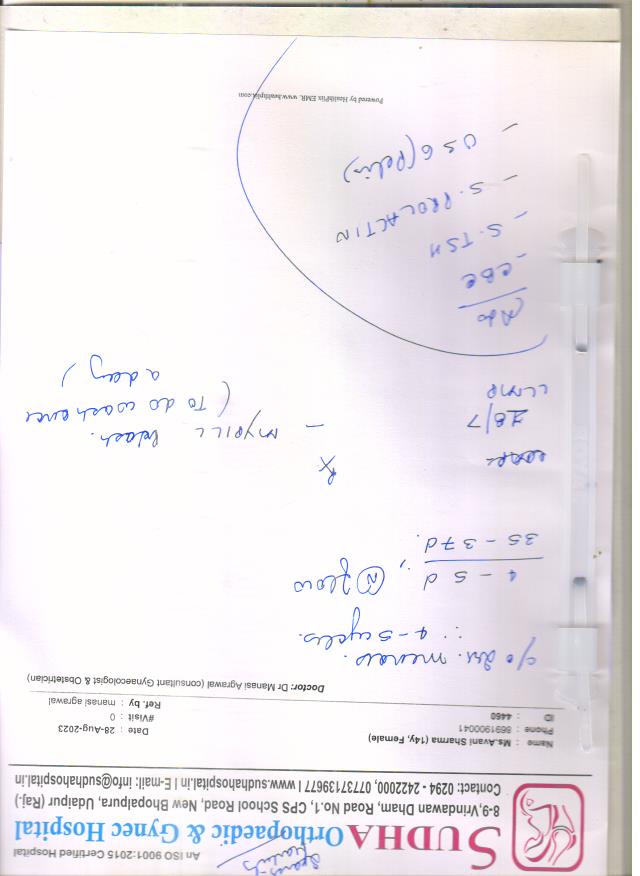 An ISO 9001:2015 Certified Hospital
SUDHA Orthopaedic & Gynec Hospital
8-9,Vrindawan Dham, Road No.1, CPS School Road, New Bhopalpura, Udaipur (Raj.)
Contact: 0294 - 2422000, 07737139677 | www.sudhahospital.in | E-mail: info@sudhahospital.in
Name : Ms.Avani Sharma (14y, Female)
Date : 28-Aug-2023
Phone : 8691900041
#Visit : 0
ID : 4460
Ref. by : manasi agrawal
Doctor: Dr Manasi Agrawal (consultant Gynaecologist & Obstetrician)
c/o menses.
∴ 4-5 cycles.
4 - 5 d ; (N) flow
35 - 37 d.
Rx
18/7
LLMP
- MYPILL Wash.
(To do wash once
a day)
Adv
- CBC
- S. TSH
- S. PROLACTIN
- USG (Pelvis)
Powered by HealthPlix EMR. www.healthplix.com